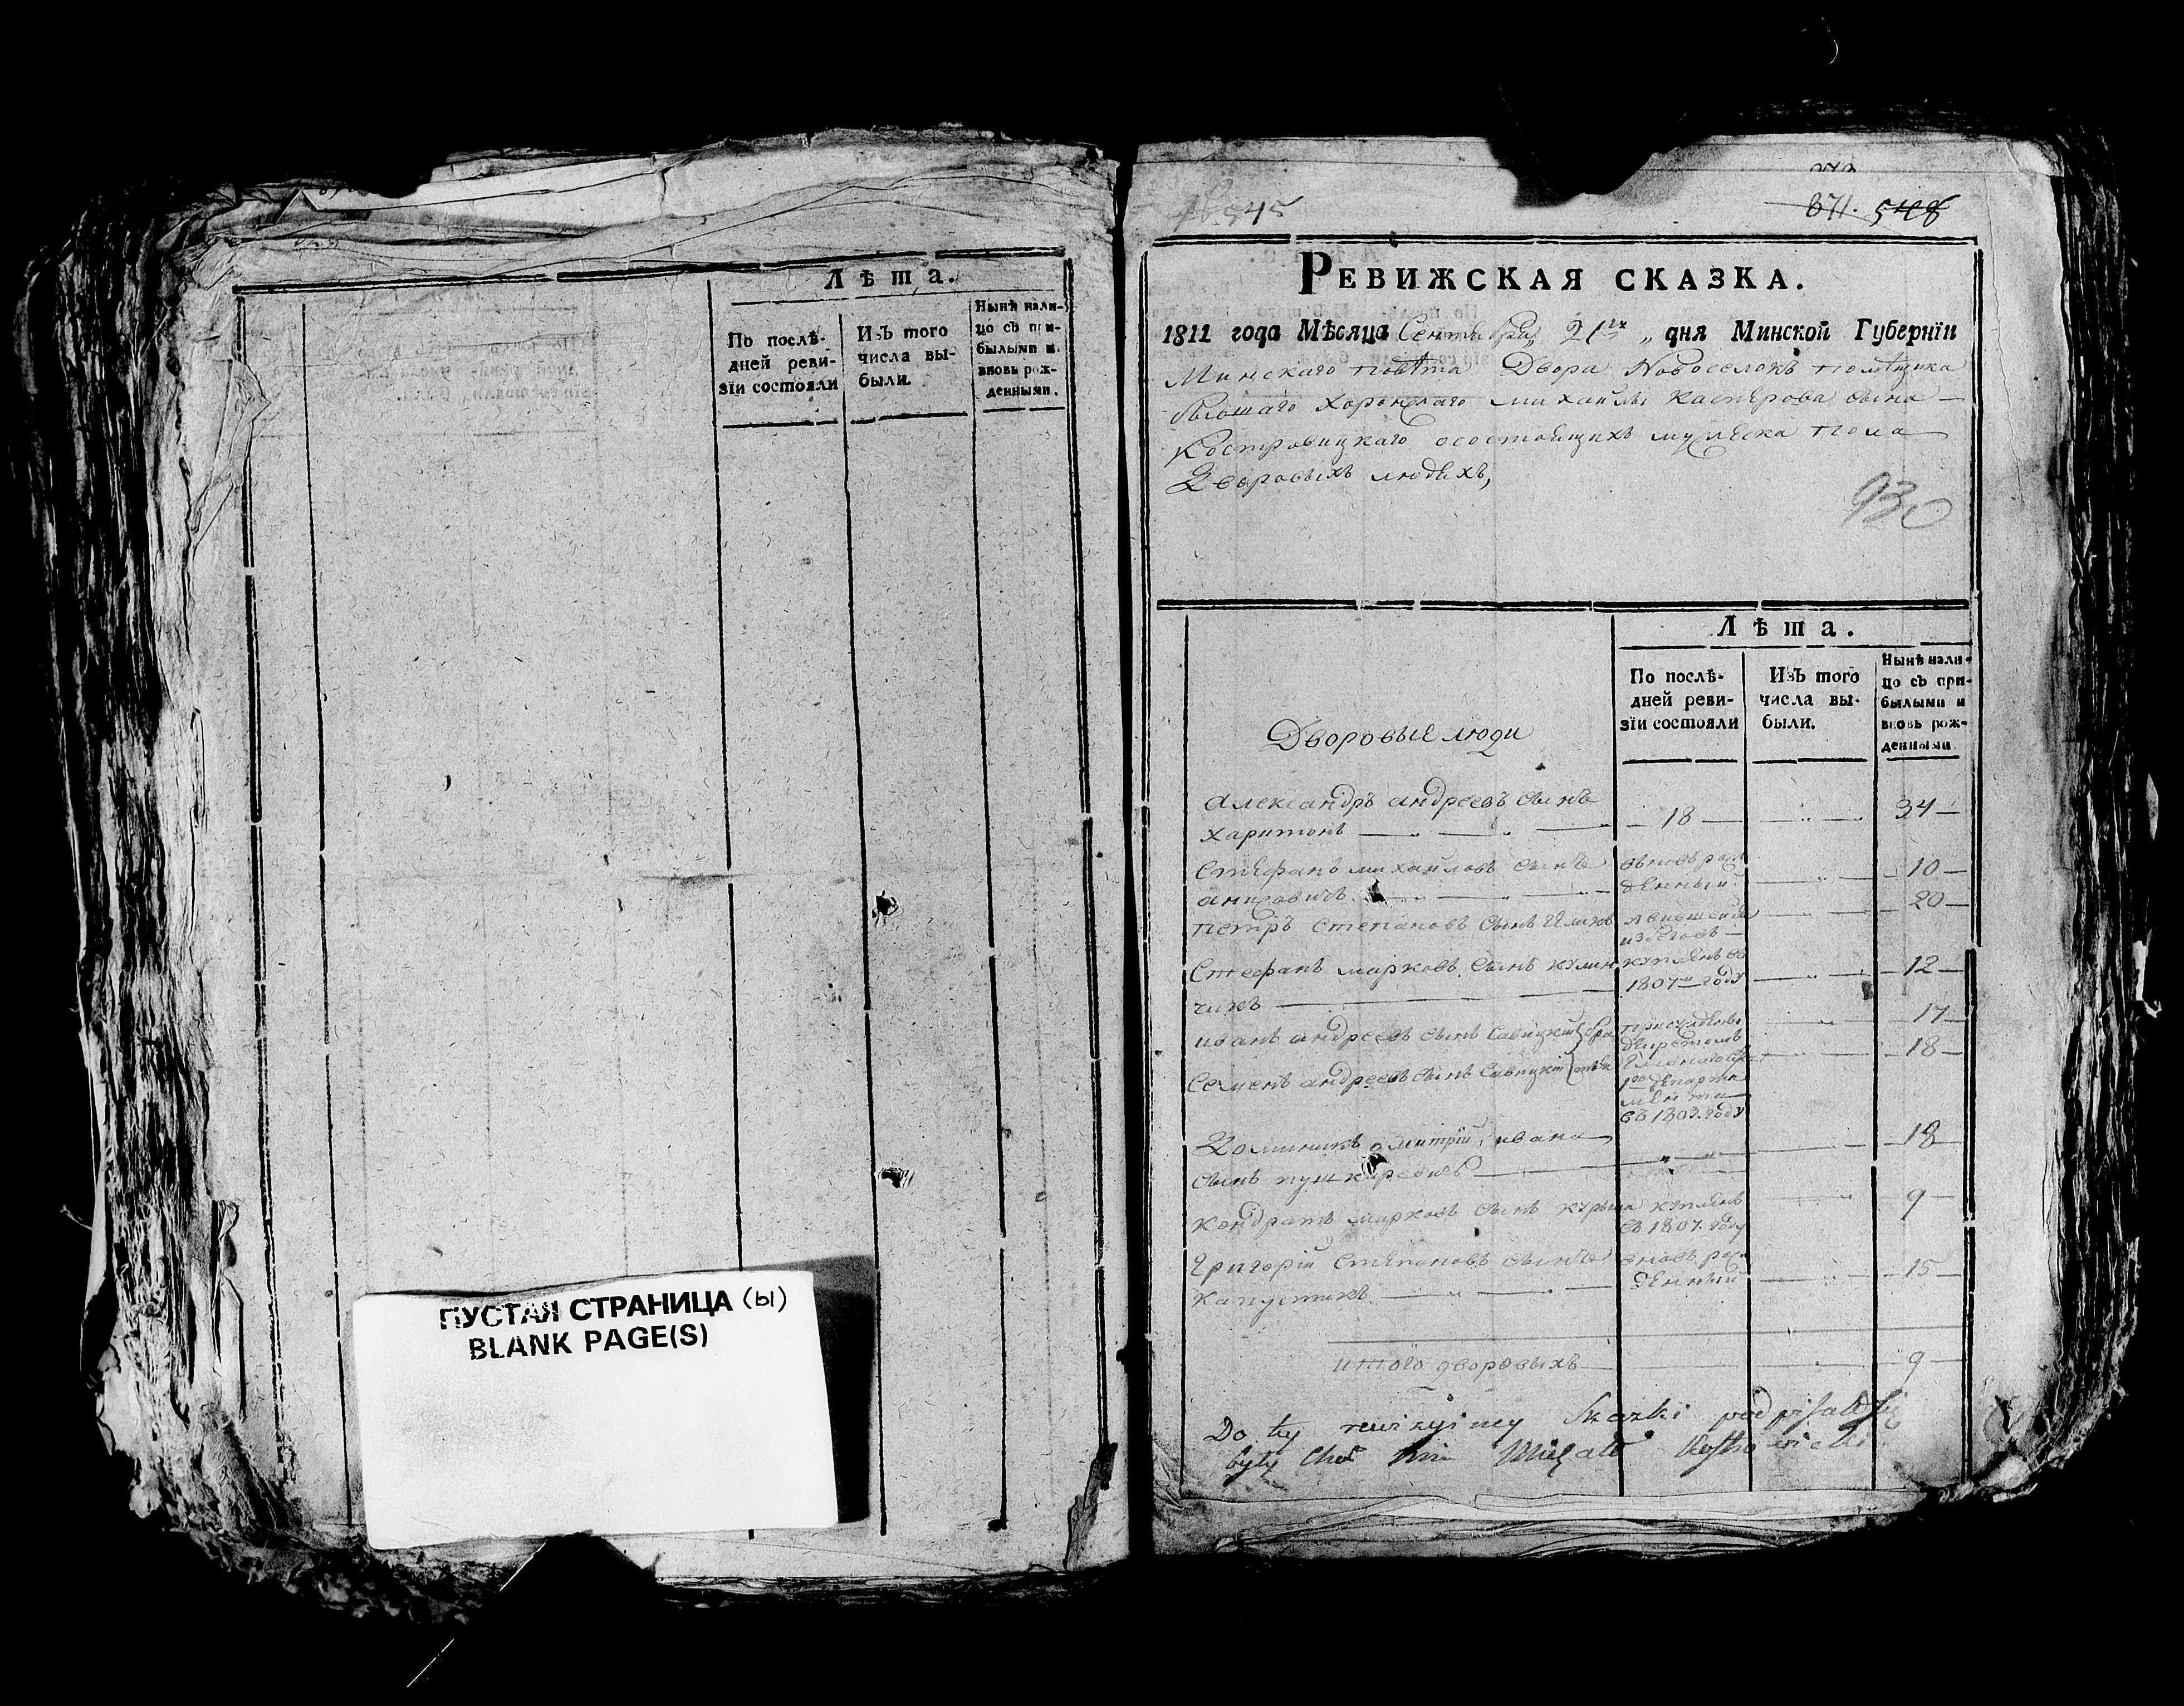 Лѣта.
По послѣ-
дней реви-
зїи состояли
Изъ того
числа вы-
были.
Нынѣ нали-
цо съ при-
былыми и
вновь рож-
денными.
ПУСТАЯ СТРАНИЦА (ы)
BLANK PAGE(S)
545
871. 548
РЕВИЖСКАЯ СКАЗКА.
1811 года Мѣсяца Сентября 21 „ дня Минской Губернїи
Минскаго повѣта Двора Новоселокъ помѣщика
бывшаго Хоронжаго Михайлы Касперова сына
Костровицкаго осостоящихъ мужеска пола
Дворовыхъ людехъ,
930
Лѣта.
По послѣ-
дней реви-
зїи состояли
Изъ того
числа вы-
были.
Нынѣ нали-
цо съ при-
былыми и
вновь рож-
денными.
Дворовые люди
Александръ андреевъ сынъ
Харитонъ — 18 — 34 —
Стефанъ михайловъ сынъ вновь рож — 10 —
денный
Петръ степановъ сынъ явившейся — 20 —
из бегов
Стефанъ марковъ сынъ кулин купленъ въ — 12 —
чикъ — 1807 году
иванъ андреевъ сынъ Савицкий — 17
Семенъ андреевъ сынъ Савицкий — 18 —
1го департа
мента
въ 1803. году
Доминикъ Дмитрий ивана — 18
сынъ пушкаревичъ —
Кондратъ марковъ сынъ купленъ 9 —
въ 1807. году
Григорій Степановъ сынъ вновь рож
Капустикъ — денный — 15 —
итого дворовыхъ — 9 —
Do tey rewizyiney Skazki podpisałsię
były Chor Min Michał Kostrowicki